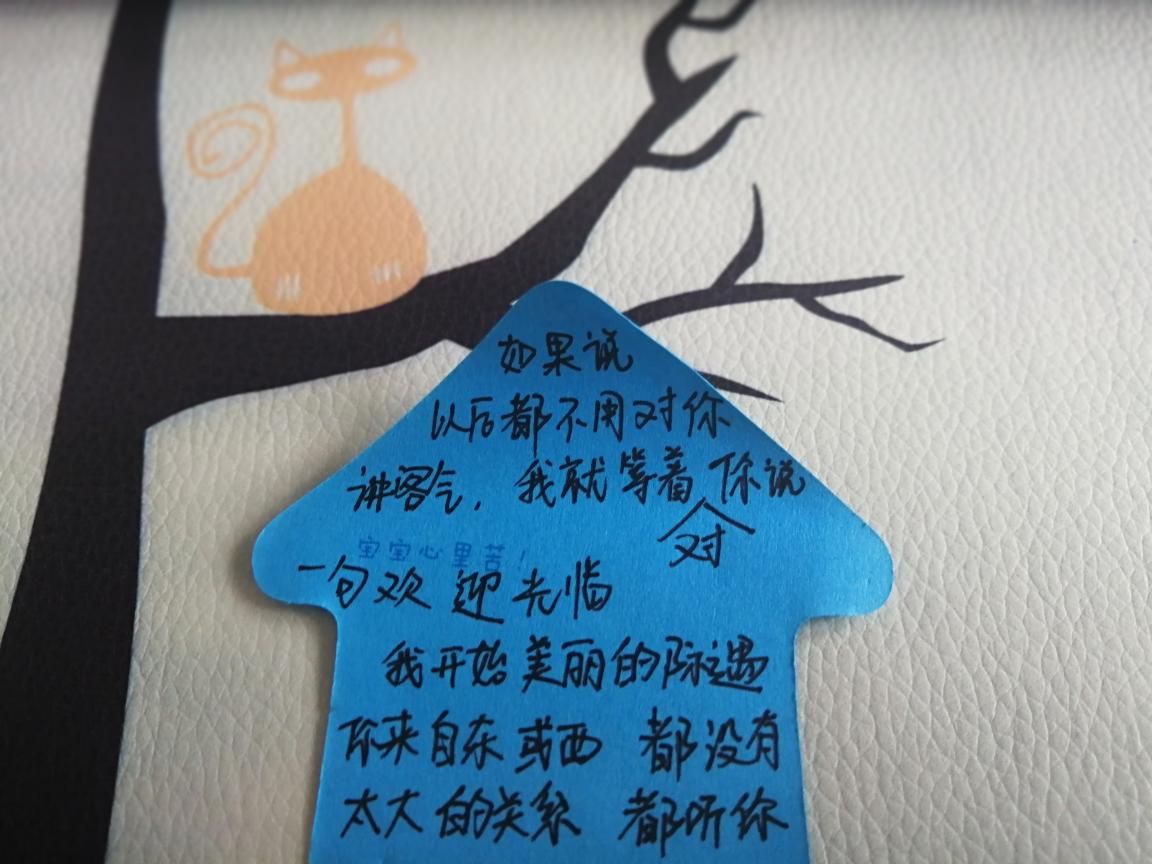 如果说
以后都不用对你
讲客气，我就等着你说
对
宝宝心里苦！
一句欢迎光临
我开始美丽的际遇
你来自东或西 都没有
太大的关系 都听你